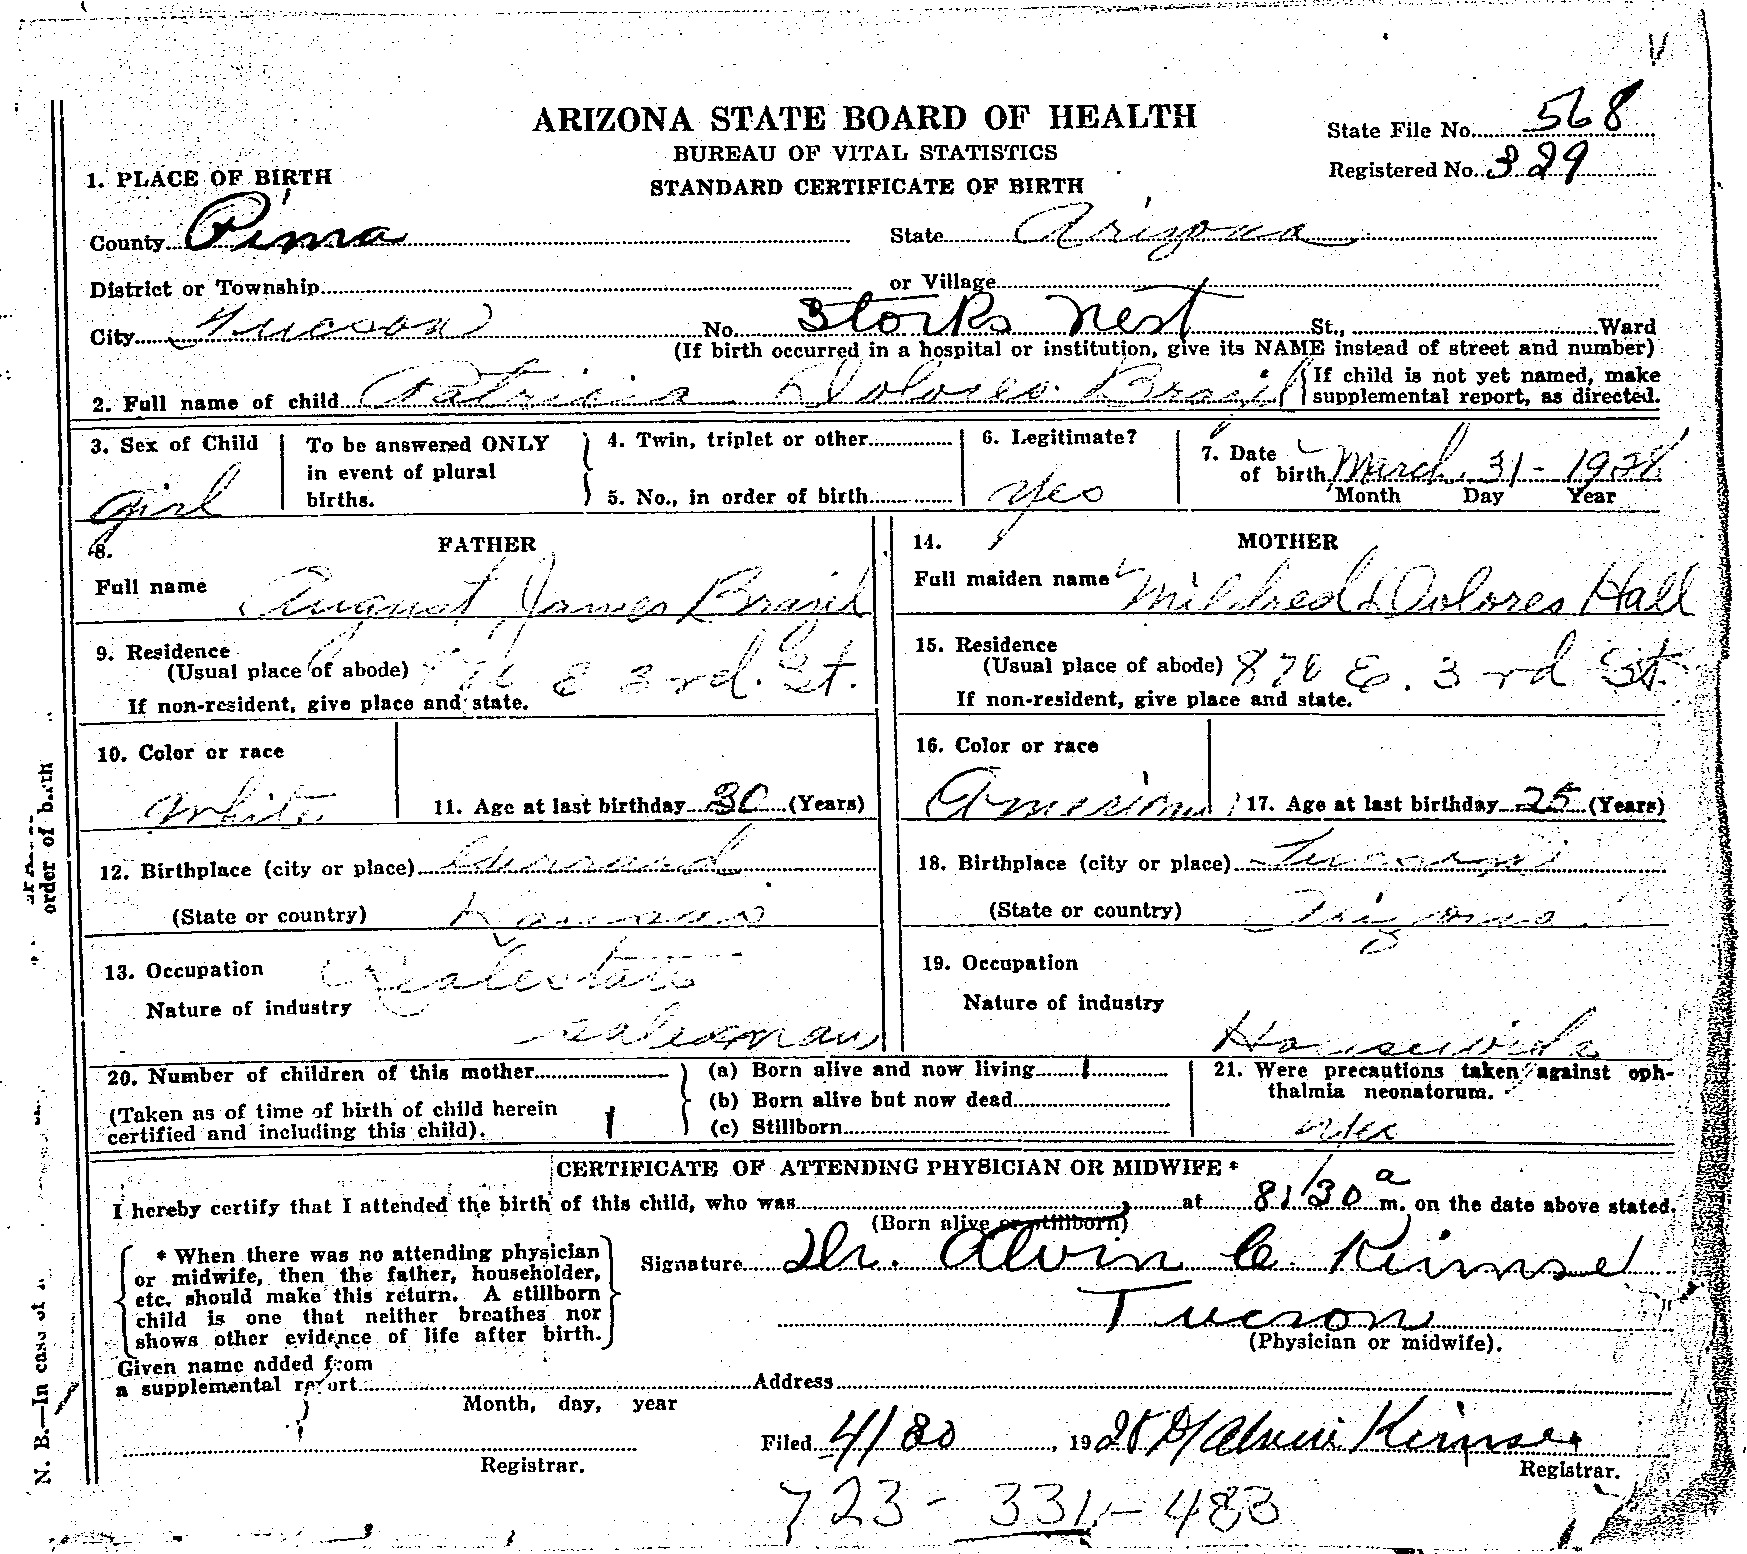 ARIZONA STATE BOARD OF HEALTH
State File No. 568
BUREAU OF VITAL STATISTICS
Registered No. 329
1. PLACE OF BIRTH
STANDARD CERTIFICATE OF BIRTH
County Pima State Arizona
District or Township or Village
City Tucson No. Storks Nest St., Ward
(If birth occurred in a hospital or institution, give its NAME instead of street and number)
2. Full name of child Patricia Dolores Brazil { If child is not yet named, make
supplemental report, as directed.
3. Sex of Child To be answered ONLY 4. Twin, triplet or other 6. Legitimate? 7. Date
in event of plural of birth March 31 - 1928
girl births. 5. No., in order of birth yes Month Day Year
8. FATHER 14. MOTHER
Full name August James Brazil Full maiden name Mildred Dolores Hall
9. Residence 15. Residence
(Usual place of abode) E 3rd. St. (Usual place of abode) 876 E. 3rd St.
If non-resident, give place and state. If non-resident, give place and state.
10. Color or race 16. Color or race
White 11. Age at last birthday 30 (Years) American 17. Age at last birthday 25 (Years)
12. Birthplace (city or place) 18. Birthplace (city or place) Tucson
(State or country) Kansas (State or country) Arizona
13. Occupation Realestate 19. Occupation
Nature of industry Nature of industry
salesman Housewife
20. Number of children of this mother (a) Born alive and now living 1 21. Were precautions taken against oph-
(Taken as of time of birth of child herein (b) Born alive but now dead thalmia neonatorum.
certified and including this child). 1 (c) Stillborn yes
CERTIFICATE OF ATTENDING PHYSICIAN OR MIDWIFE *
I hereby certify that I attended the birth of this child, who was at 8:30 a m. on the date above stated.
(Born alive or stillborn)
* When there was no attending physician Signature Dr. Alvin C. Kirmse
or midwife, then the father, householder,
etc. should make this return. A stillborn
child is one that neither breathes nor Tucson
shows other evidence of life after birth. (Physician or midwife).
Given name added from
a supplemental report Address
Month, day, year
Filed 4/30, 1928 Alvin Kirmse
Registrar. Registrar.
723 - 331 - 483
order of birth
N. B.—In case of